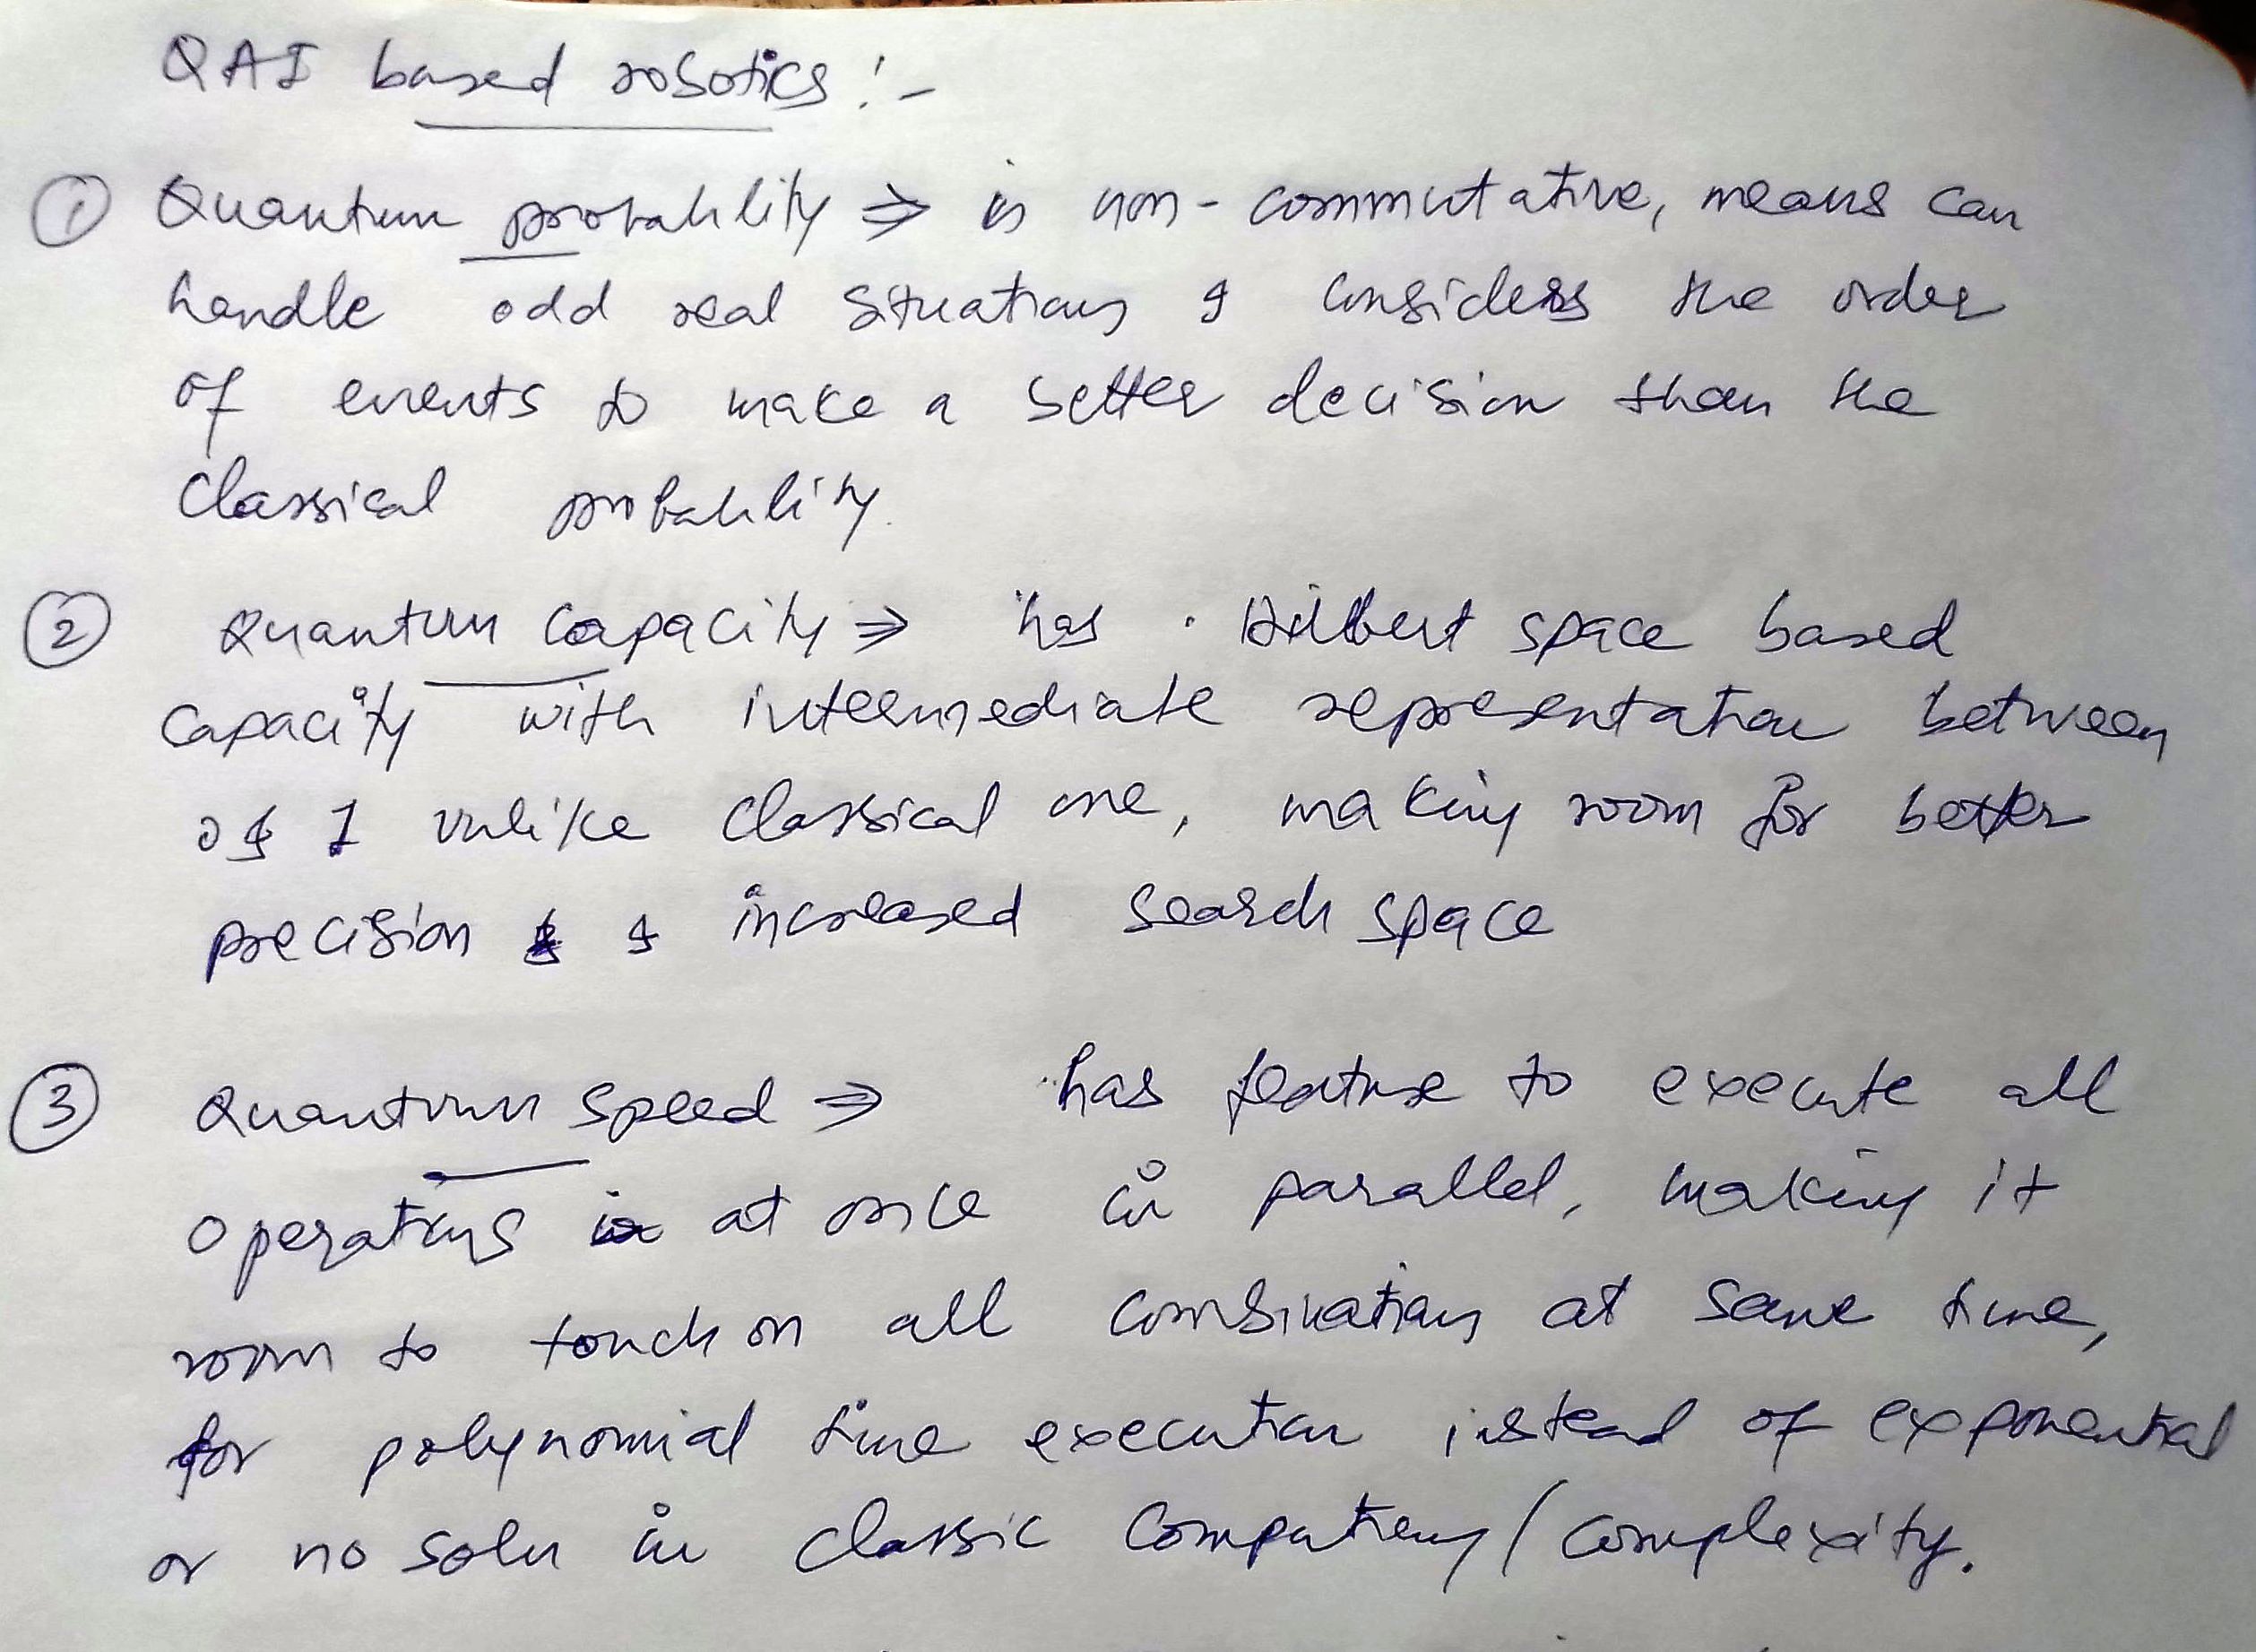 QAI based robotics :-
① Quantum probability ⇒ is non-commutative, means can
handle odd real situations & considers the order
of events to make a better decision than the
classical probability.
② Quantum capacity ⇒ has Hilbert space based
capacity with intermediate representation between
0 & 1 unlike classical one, making room for better
precision & increased search space
③ Quantum speed ⇒ has feature to execute all
operations at once in parallel, making it
room to touch on all combinations at same time,
for polynomial time execution, instead of exponential
or no soln in classic computing/complexity.